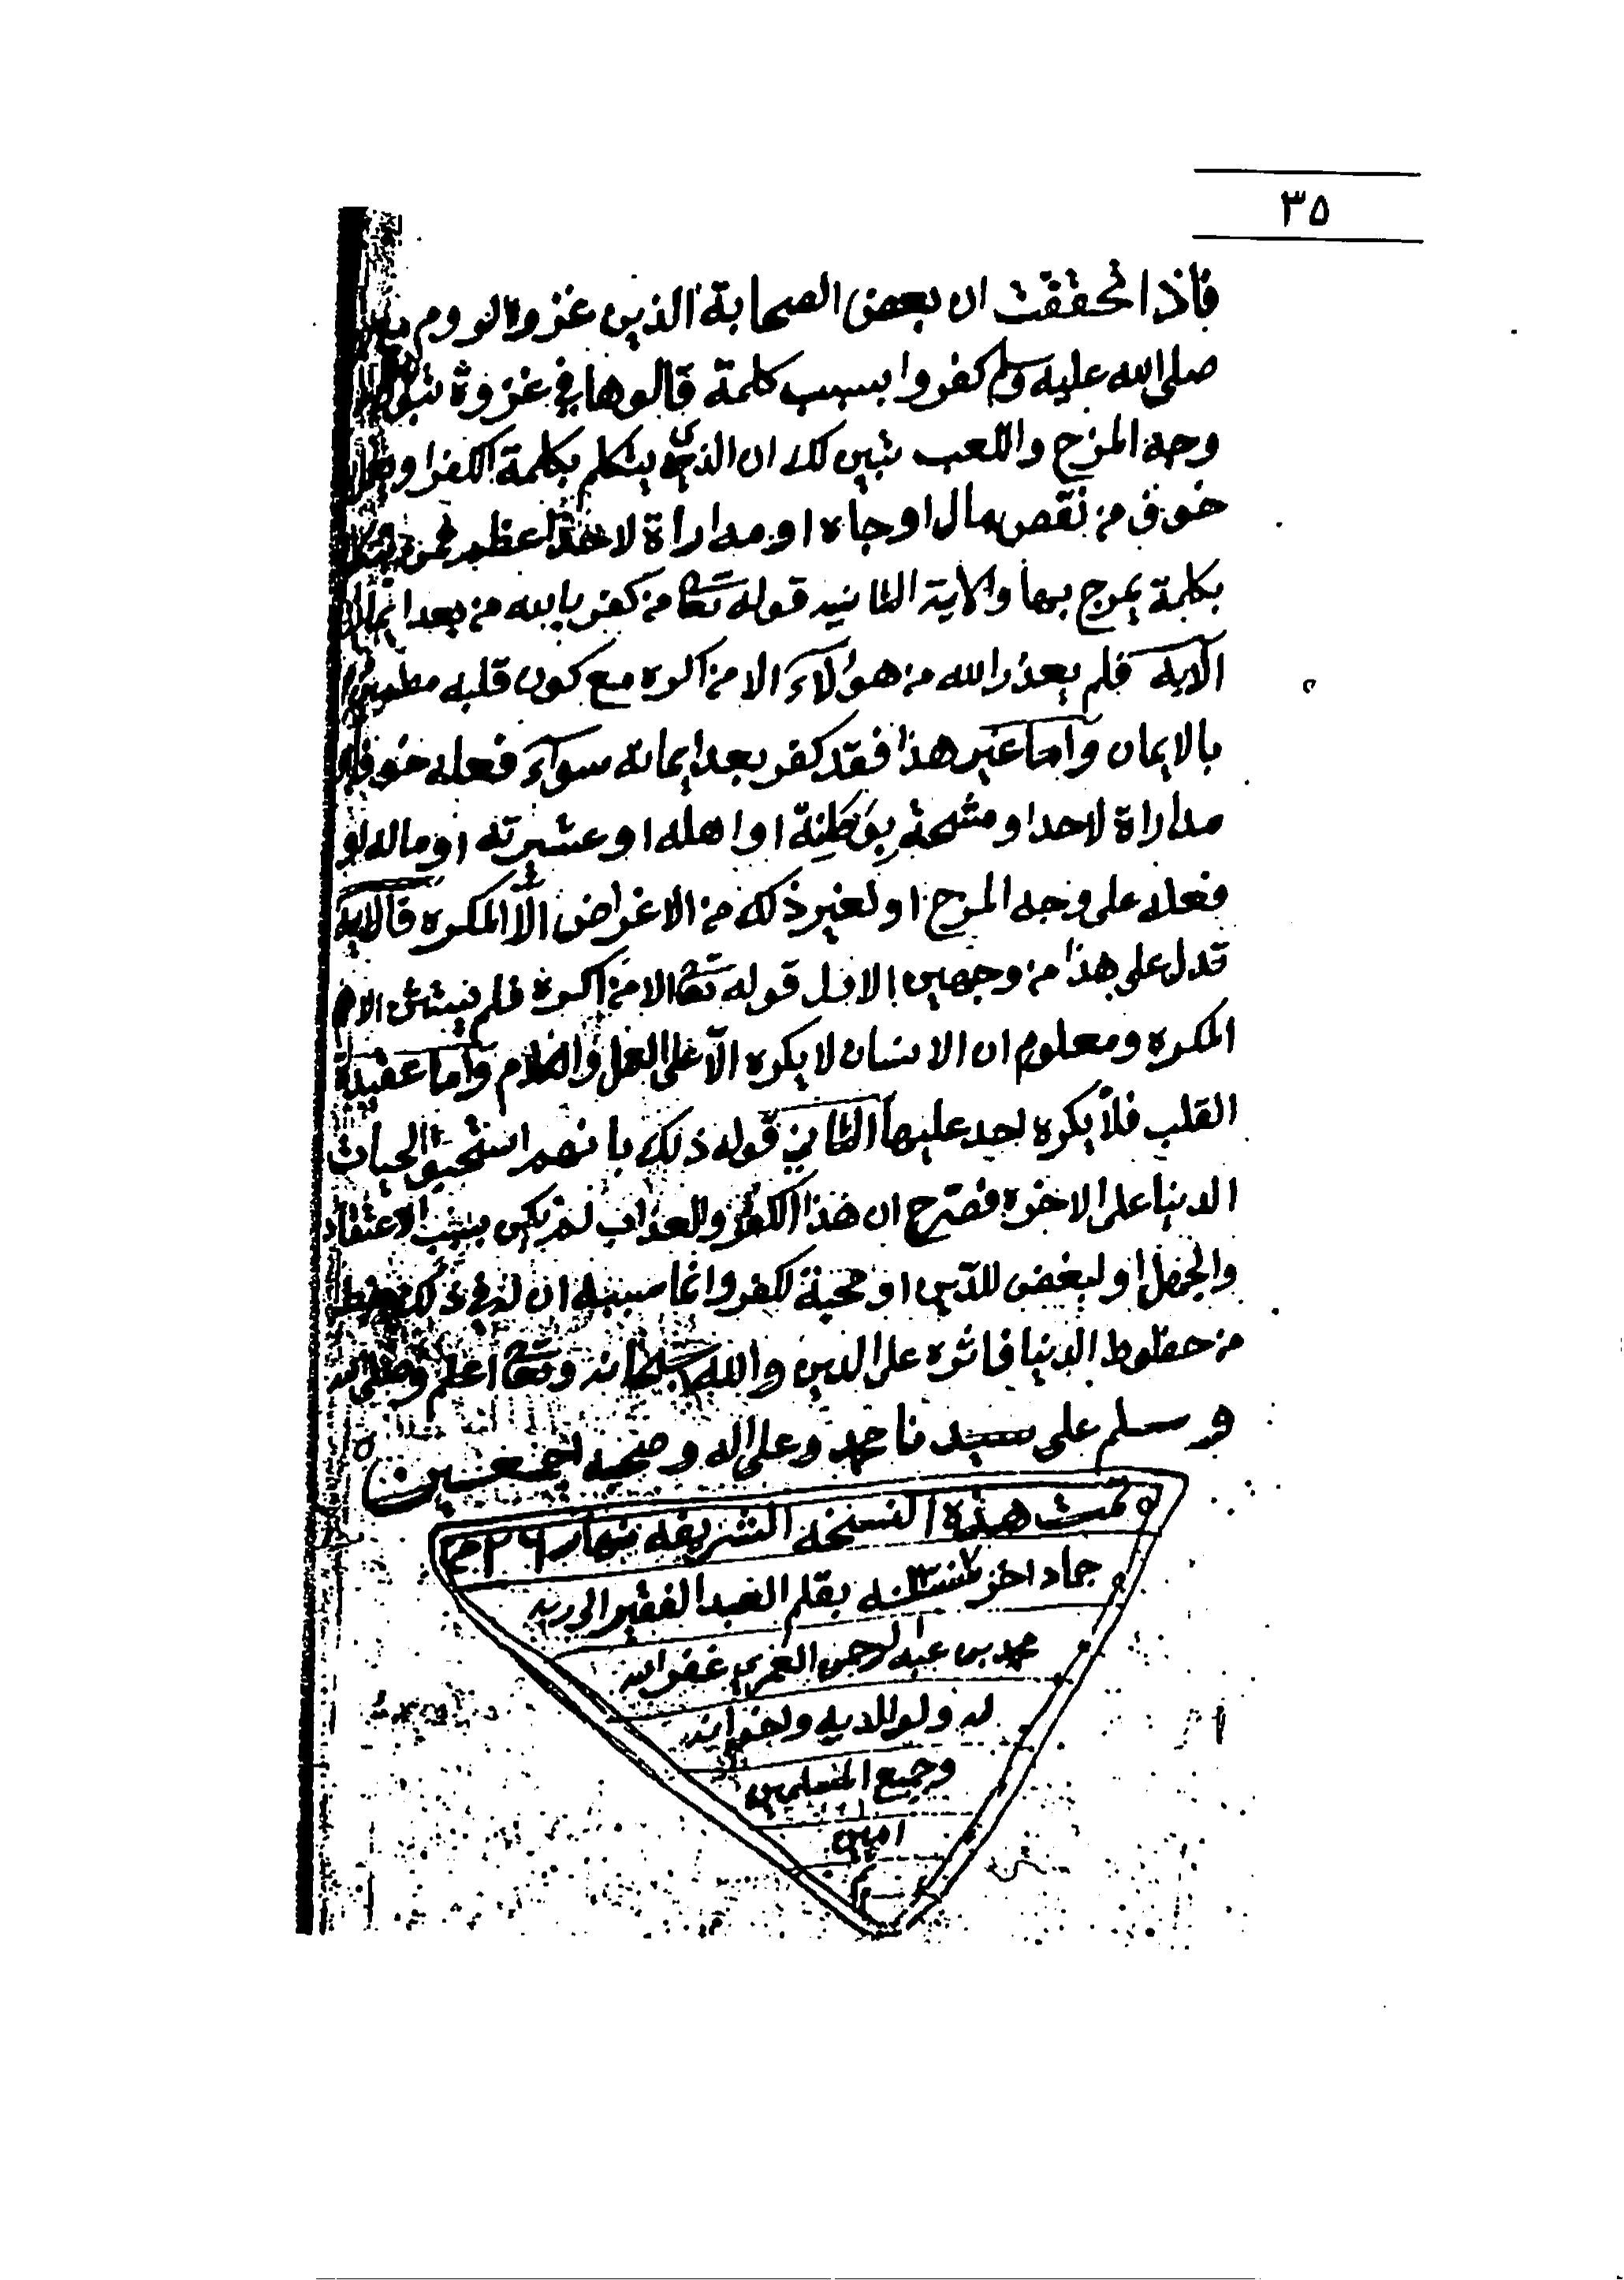 ٣٥
فاذا تحققت ان بعض الصحابة الذين غزو الروم مع
صلى الله عليه وسلم كفروا بسبب كلمة قالوها في غزوة تبوك
وجه المزح واللعب تبين لك ان الذي يتكلم بكلمة الكفر او يعمل
خوف من نقص مال او جاه او مداراة لاحد اعظم ممن يتكلم
بكلمة يمزح بها والاية الثانيه قوله تعا من كفر بالله من بعد ايمانه
الآية فلم يعذر الله من هؤلآء الا من اكره مع كون قلبه مطمئن
بالايمان واما غير هذا فقد كفر بعد ايمانه سوآء فعله خوفا او
مداراة لاحد او مشحة بوطنه او اهله او عشيرته او ماله او
فعله على وجه المزح او لغير ذلك من الاغراض الّا المكره فالاية
تدل على هذا من وجهين الاول قوله تعا الا من اكره فلم يستثن الا
المكره ومعلوم ان الانسان لا يكره الّا على العمل والكلام واما عقيدة
القلب فلا يكره احد عليها الثاني قوله ذلك بانهم استحبو الحيات
الدينا على الاخره فصرح ان هذا الكفر والعذاب لم يكن بسبب الاعتقاد
والجهل او لبغض للدين او محبة لكفر وانما سببه ان له في ذلك حظ
من حظوظ الدنيا فاثره على الدين والله سبحانه وتعا اعلم وصلى الله
وسلم على سيد نا محمد وعلى اله وصحبه اجمعين
وتمت هذه النسخه الشريفه نهار ٢٦
جماد اخر سنه بقلم العبد الفقير الى ربه
محمد بن عبد الرحمن العمري غفر الله
له ولوالديه ولاخوانه
وجميع المسلمين
امين